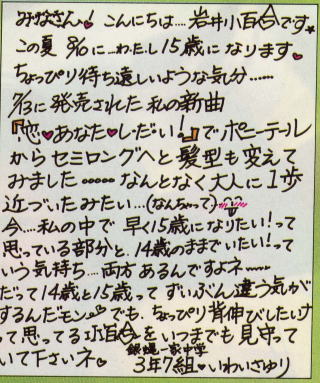 みなさん♥ こんにちは….岩井小百合です★
この夏 8/6に…わたし15歳になります♥
ちょっぴり待ち遠しいような気分……
7/13に発売された私の新曲
『恋♥あなた♥しだい!』でポニーテール
からセミロングへと髪型も変えて
みました……なんとなく大人に1歩
近づいたみたい…(なんちゃって)
今….私の中で早く15歳になりたい!って
思っている部分と、14歳のままでいたい!って
いう気持ち…両方あるんですよネ……
だって14歳と15歳って ずいぶん違う気が
するんだモン〜でも、ちょっぴり背伸びしたいナ
って思ってる小百合をいつまでも見守って
いて下さいネ♥ 銀蝿一家中学
3年7組♥いわいさゆり